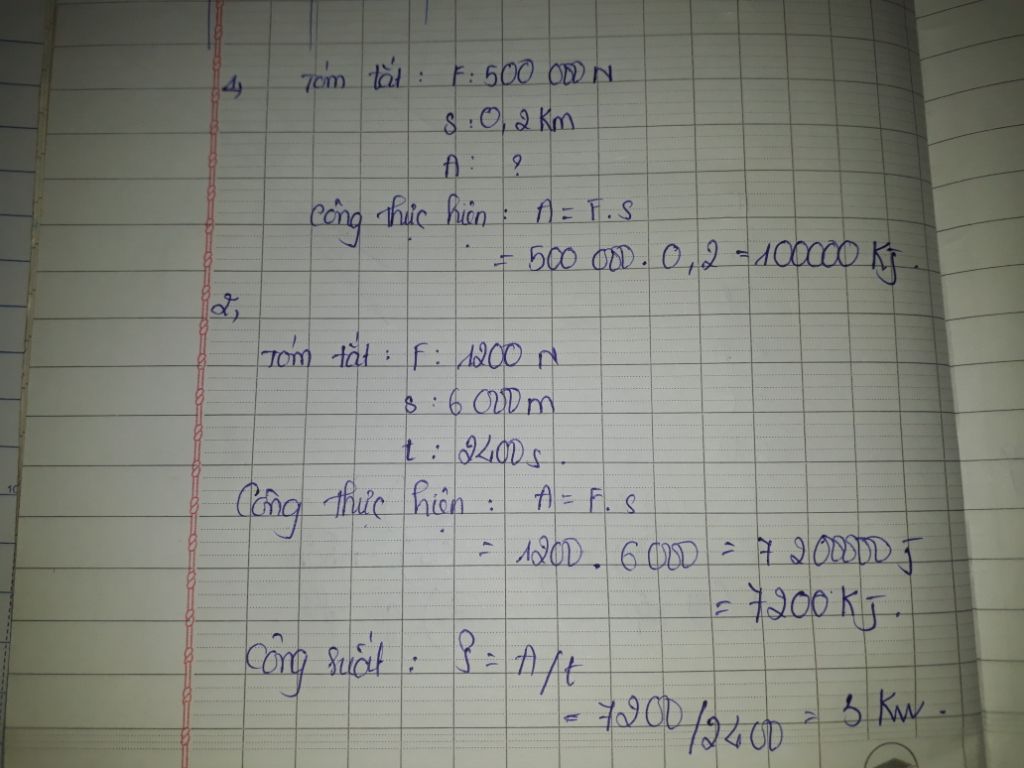 1, Tóm tắt : F : 500 000 N
s : 0,2 Km
A : ?
Công thực hiện : A = F. s
= 500 000. 0,2 = 100000 KJ.
2,
Tóm tắt : F : 1200 N
s : 6 000m
t : 2400s.
Công thực hiện : A = F. s
= 1200. 6 000 = 7 200000 J
= 7200 KJ.
Công suất : P = A/t
= 7200/2400 = 3 Kw.